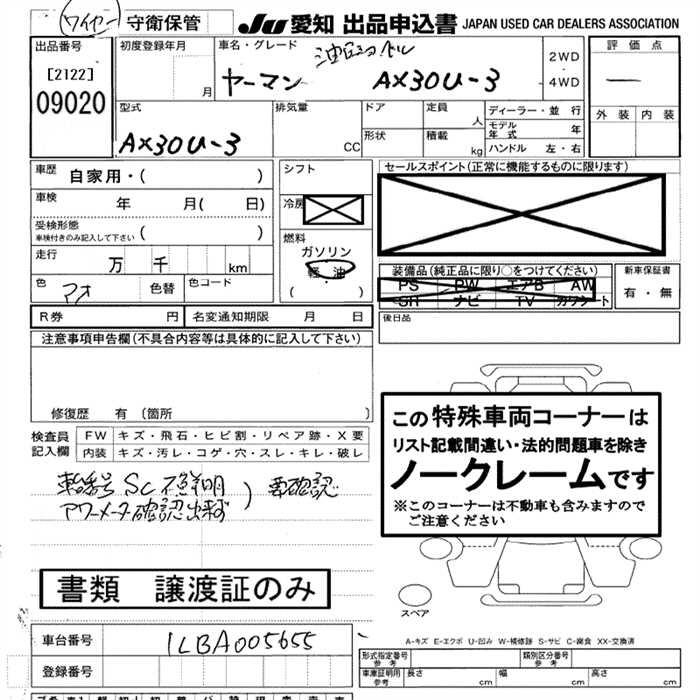 ワイヤー 守衛保管 JU 愛知 出品申込書 JAPAN USED CAR DEALERS ASSOCIATION
出品番号 [2122] 09020
初度登録年月 月
車名・グレード 油圧ショベル
ヤーマン AX30U-3
2WD ・ 4WD
評価点 ー
外装 内装
型式 AX30U-3
排気量 CC
ドア 形状
定員 人 積載 kg
ディーラー・並行
モデル年式 年
ハンドル 左・右
車歴 自家用・( )
車検 年 月( 日)
受検形態 車検付きのみ記入して下さい ( )
走行 万 千 km
色 アオ 色替 色コード
シフト
冷房
燃料 ガソリン 軽油 ( )
セールスポイント(正常に機能するものに限ります)
装備品(純正品に限り○をつけてください)
PS PW エアB AW
SR ナビ TV カワシート
新車保証書 有・無
R券 円 名変通知期限 月 日
後日品
注意事項申告欄(不具合内容等は具体的に記入して下さい)
修復歴 有 (箇所 )
検査員記入欄
FW キズ・飛石・ヒビ割・リペア跡・X要
内装 キズ・汚レ・コゲ・穴・スレ・キレ・破レ
この特殊車両コーナーは
リスト記載間違い・法的問題車を除き
ノークレームです
※このコーナーは不動車も含みますので
ご注意ください
車台番号 SC不鮮明 ) 要確認
アワーメータ確認出来ず
書類 譲渡証のみ
スペア
A-キズ E-エクボ U-凹み W-補修跡 S-サビ C-腐食 XX-交換済
車台番号 1LBA005655
登録番号
形式指定番号 参考 類別区分番号 参考
車庫証明用 参考 長さ cm 幅 cm 高さ cm